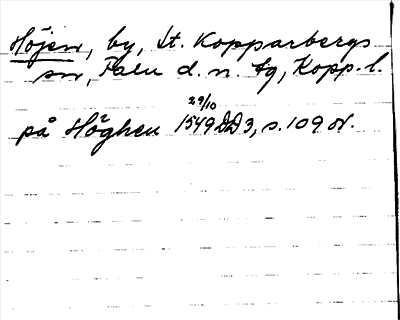 Höjen, by, St. Kopparbergs
sn, Falu d. n. tg, Kopp. l.
29/10
på Höghen 1549 DD 3, s. 109 or.